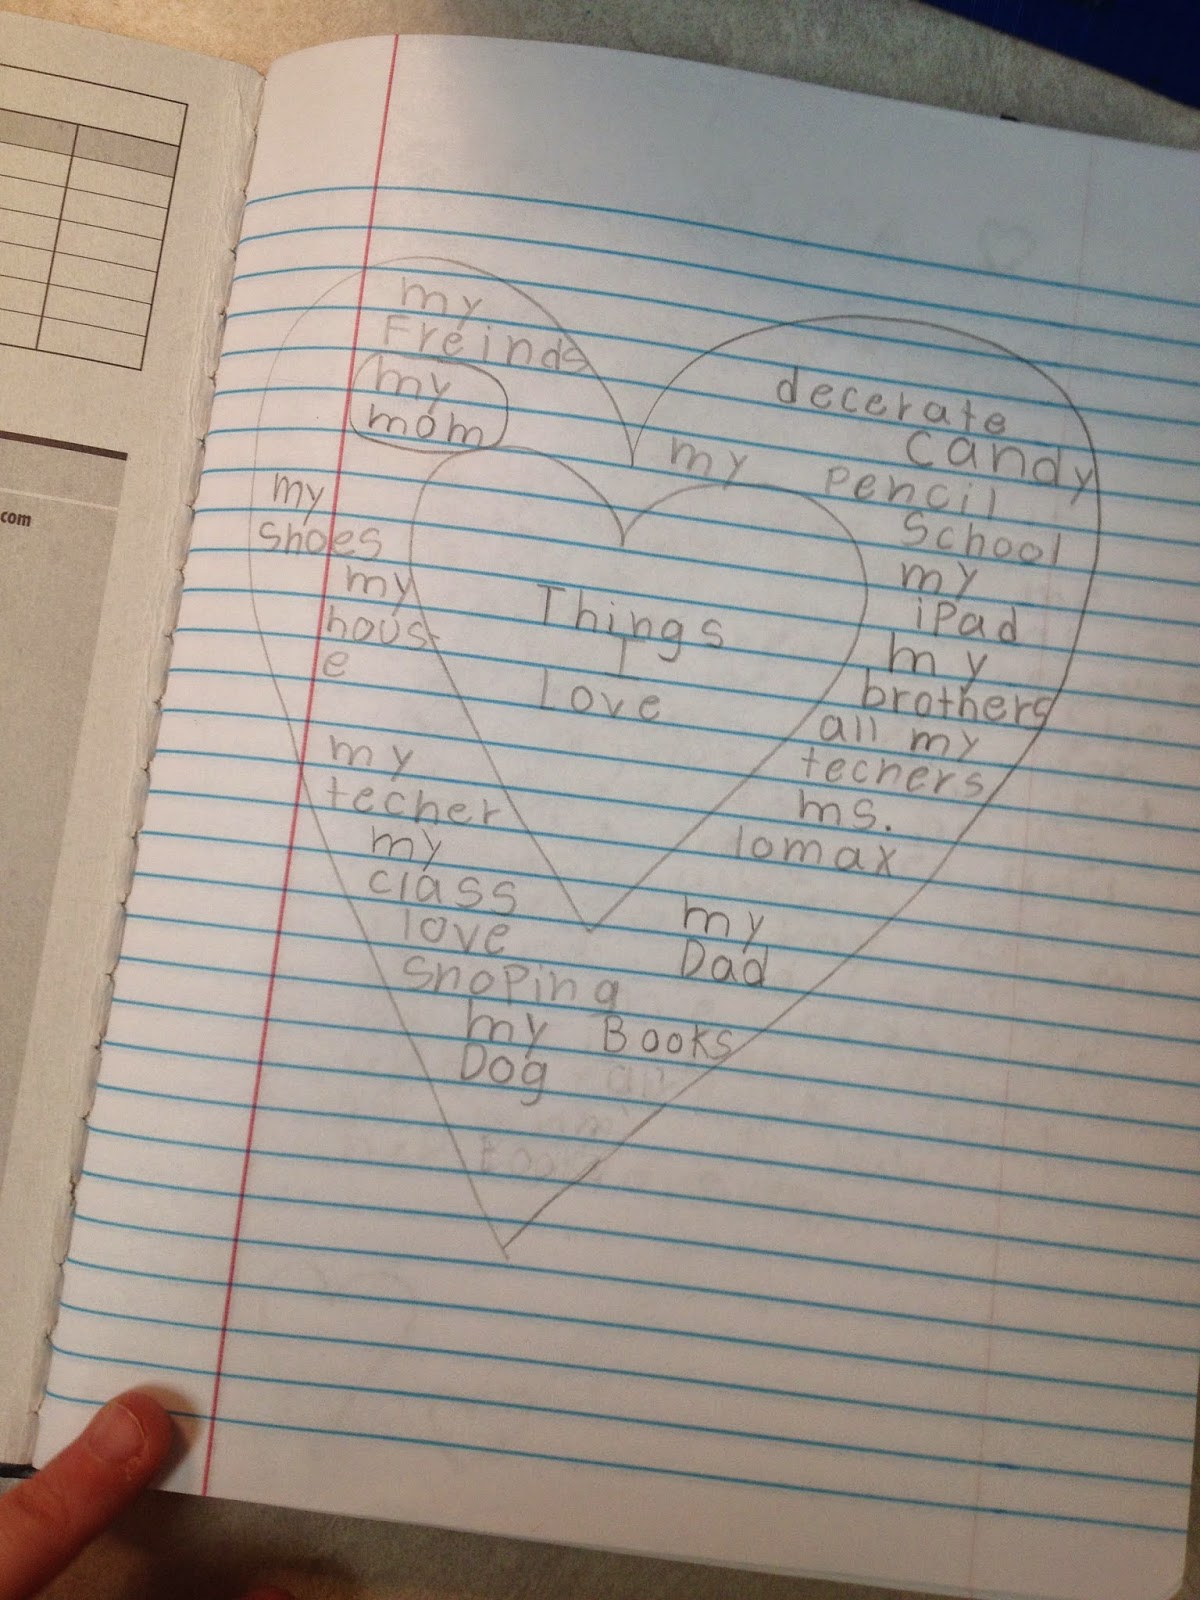 com
my
Freinds
my
mom
my
shoes
my
hous
e
my
techer
my
class
love
shoping
my
Dog
Things
I
Love
decerate
candy
my pencil
School
my
iPad
my
brothers
all my
techers
ms.
lomax
my
Dad
Books